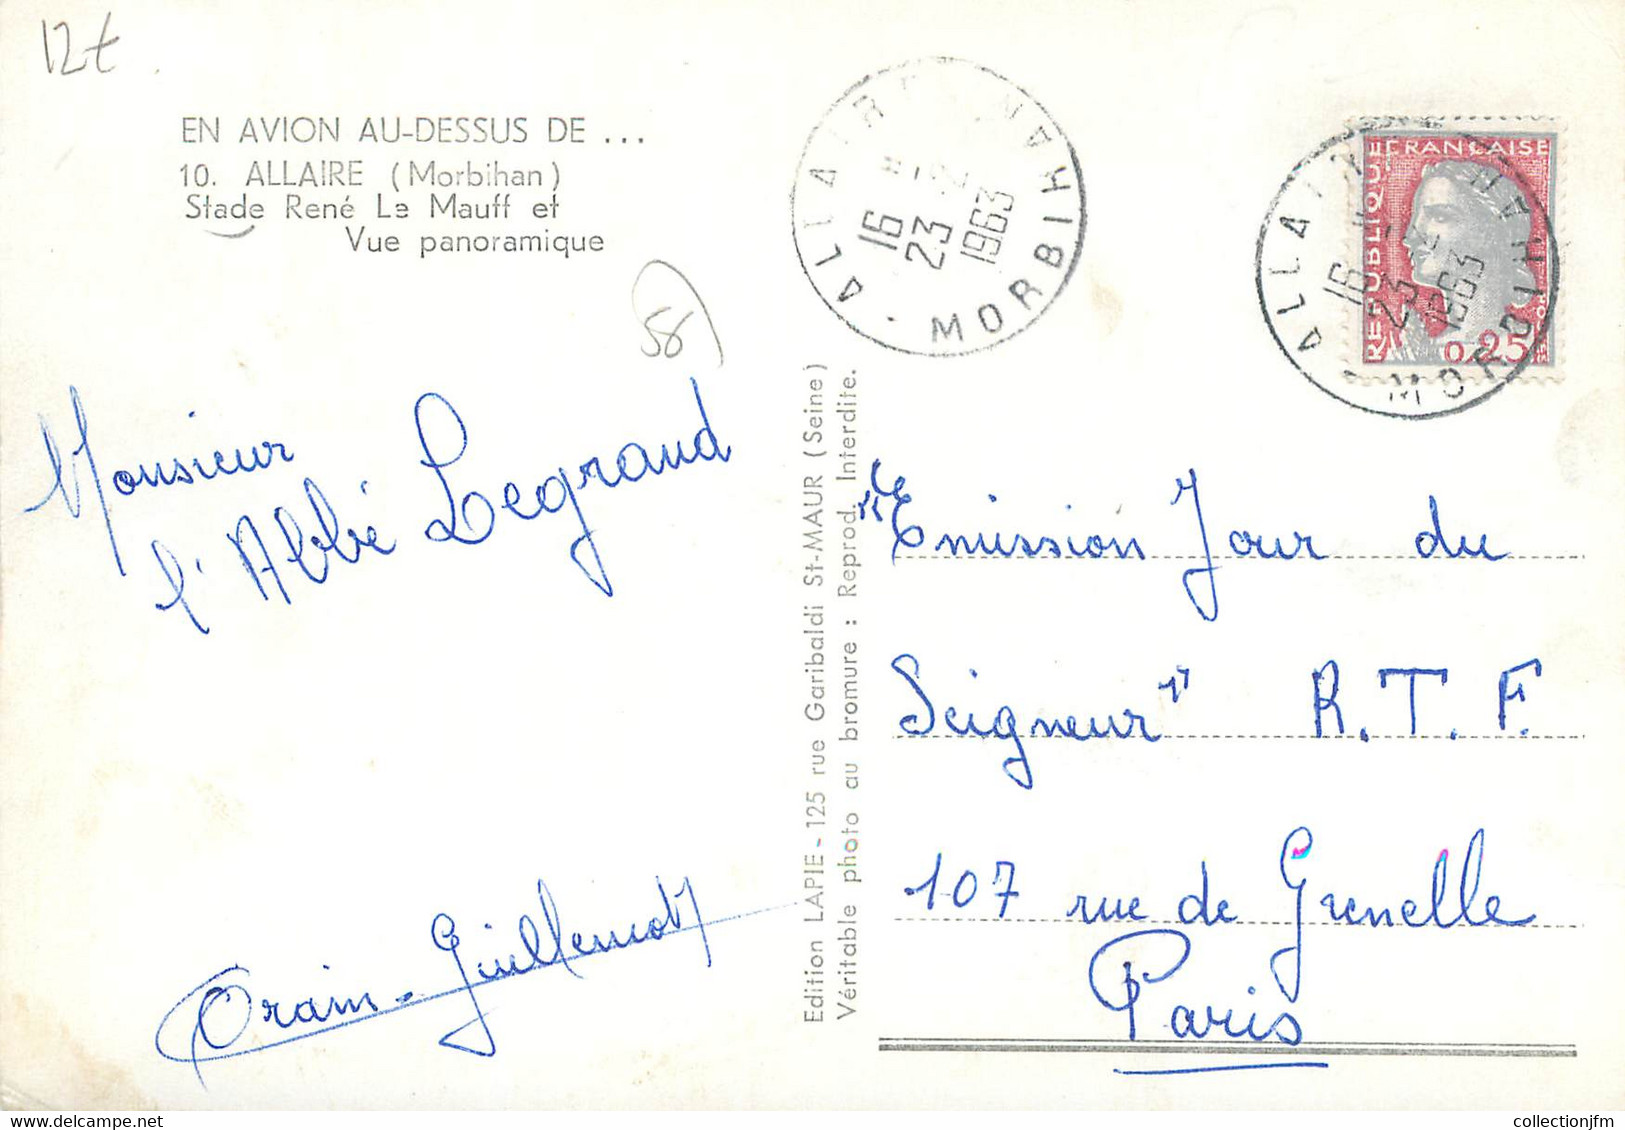 12t
EN AVION AU-DESSUS DE ...
10. ALLAIRE (Morbihan)
Stade René Le Mauff et
Vue panoramique
56
Monsieur
l'Abbé Legrand
Orain-Guillemot
Edition LAPIE - 125 rue Garibaldi St-MAUR (Seine)
Véritable photo au bromure : Reprod. Interdite.
ALLAIRE
16
23 - 2
1963
MORBIHAN
REPUBLIQUE FRANÇAISE
0,25
ALLAIRE
16
23 - 2
1963
MORBIHAN
"Le
Emission Jour du
Seigneur" R.T.F.
107 rue de Grenelle
Paris
collectionjfm